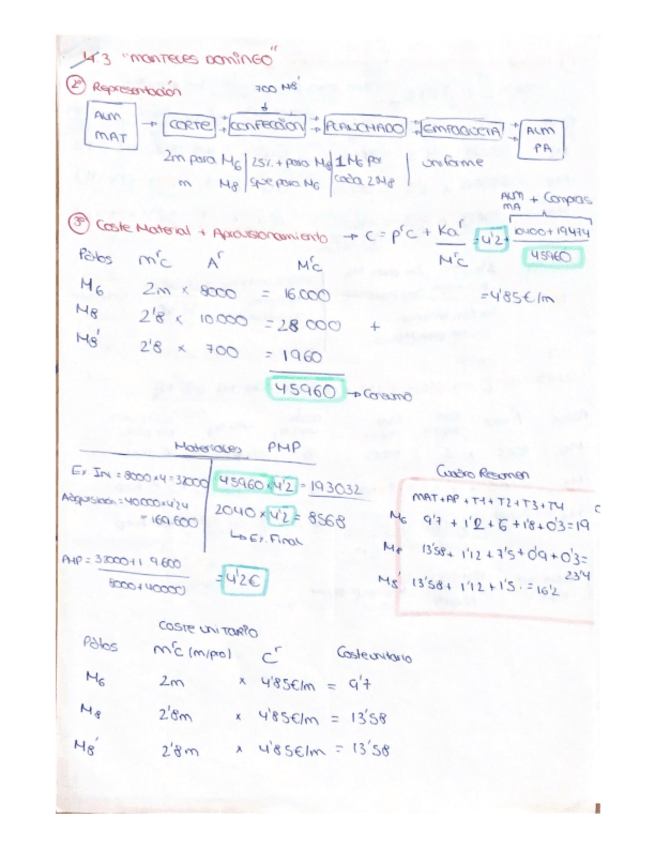 4.3 "MANTELES DOMINGO"
2º Representación
700 M8'
ALM MAT → CORTE CONFECCIÓN PLANCHADO EMPAQUETA ALM PA
2m para M6 | 25% + para M8 | 1 M6 por | uniforme
m M8 | que para M6 | cada 2 M8
ALM MA + Compras
3º Coste Material + Aprovisionamiento → C = p^r c + Ka^r / M^r c = 4'2 + 10400 + 19474 / 45960
Pdtos m^r c A^r M^r c
= 4'85 €/m
M6 2m × 8000 = 16000
M8 2'8 × 10000 = 28000 +
M8' 2'8 × 700 = 1960
45960 → Consumo
Materiales PMP
Ex. Ini = 8000 × 4 = 32000 | 45960 × 4'2 = 193032
Adquisición = 40000 × 4'24 = 169.600 | 2040 × 4'2 = 8568
↳ Ex. Final
PMP = 32000 + 1 9600 / 8000 + 40000 = 4'2 €
Cuadro Resumen
MAT + AP + T1 + T2 + T3 + T4
M6 9'7 + 1'2 + 6 + 1'8 + 0'3 = 19
M8 13'58 + 1'12 + 7'5 + 0'9 + 0'3 = 23'4
M8' 13'58 + 1'12 + 1'5 . = 16'2
COSTE UNITARIO
Pdtos m^r c (m/pdo) C^r Coste unitario
M6 2m × 4'85 €/m = 9'7
M8 2'8m × 4'85 €/m = 13'58
M8' 2'8m × 4'85 €/m = 13'58